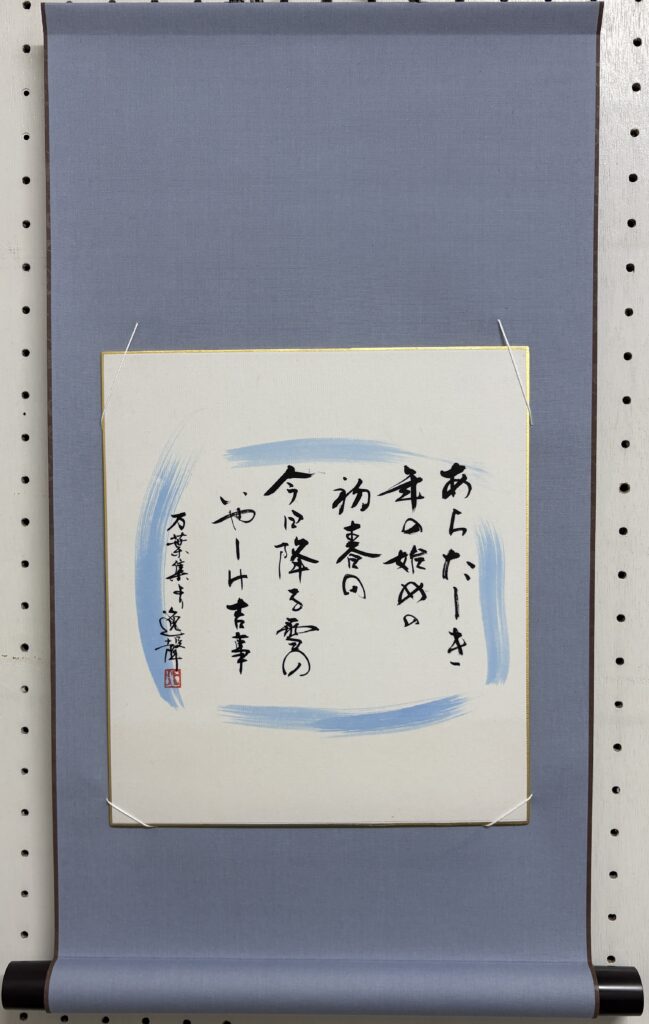 あらたしき
年の始めの
初春の
今日降る雪の
いやしけ吉事
万葉集より 逸聲